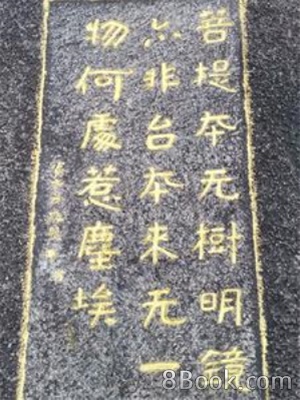 菩提本无樹明鏡
亦非台本来无一
物何處惹塵埃
8Book.com